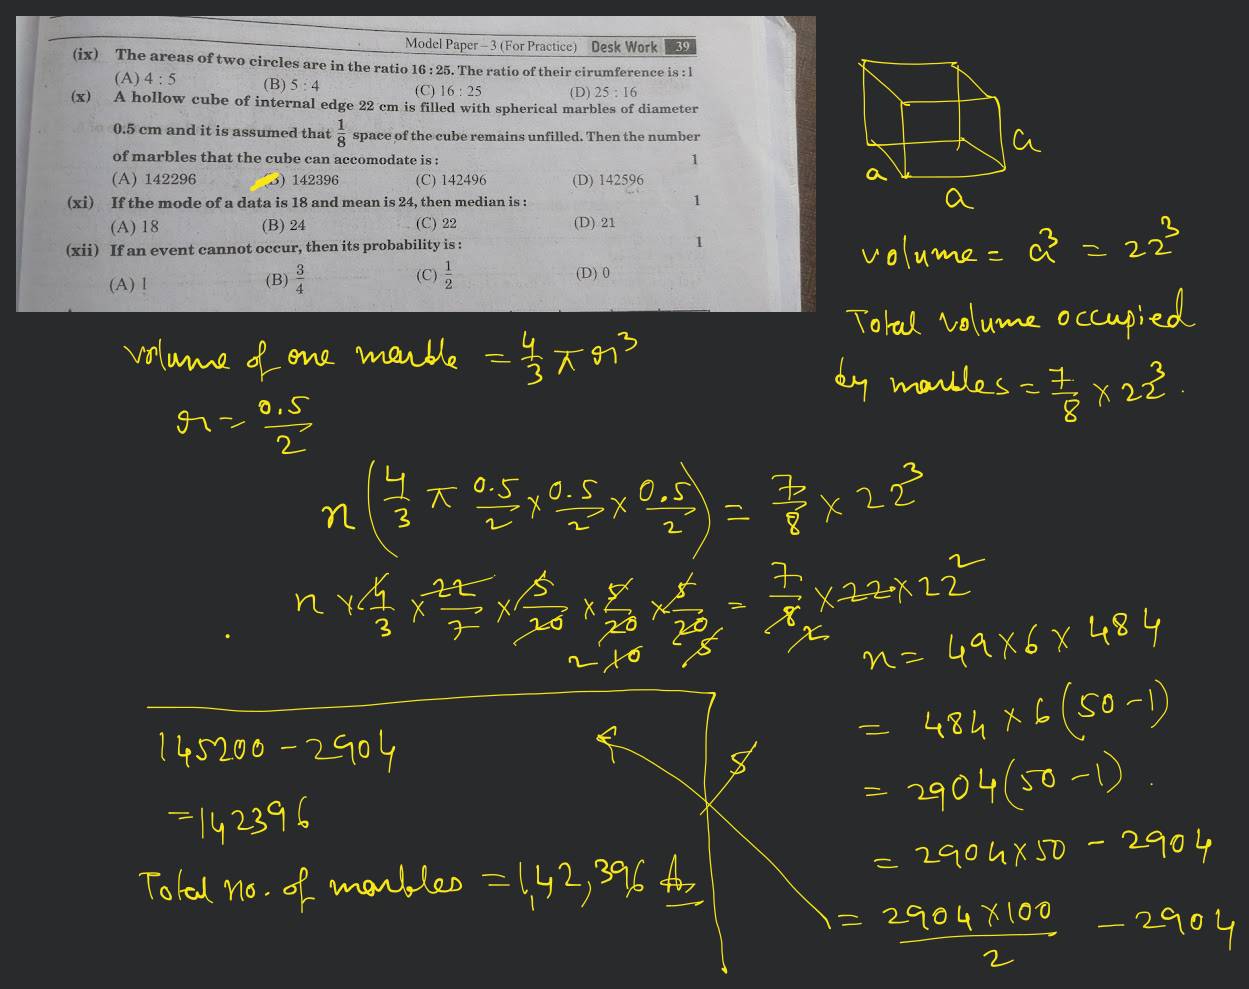 Model Paper – 3 (For Practice) Desk Work 39
(ix) The areas of two circles are in the ratio 16 : 25. The ratio of their cirumference is : 1
(A) 4 : 5 (B) 5 : 4 (C) 16 : 25 (D) 25 : 16
(x) A hollow cube of internal edge 22 cm is filled with spherical marbles of diameter
0.5 cm and it is assumed that 1/8 space of the cube remains unfilled. Then the number
of marbles that the cube can accomodate is : 1
(A) 142296 (B) 142396 (C) 142496 (D) 142596
(xi) If the mode of a data is 18 and mean is 24, then median is : 1
(A) 18 (B) 24 (C) 22 (D) 21
(xii) If an event cannot occur, then its probability is : 1
(A) 1 (B) 3/4 (C) 1/2 (D) 0
a
a
a
volume = a³ = 22³
Total volume occupied
by marbles = 7/8 × 22³.
volume of one marble = 4/3 π r³
r = 0.5/2
n (4/3 π 0.5/2 × 0.5/2 × 0.5/2) = 7/8 × 22³
n × 4/3 × 22/7 × 5/20 × 5/20 × 5/20 = 7/8 × 22 × 22²
2 10 5 2
n = 49 × 6 × 484
= 484 × 6 (50 - 1)
= 2904 (50 - 1).
= 2904 × 50 - 2904
= 2904 × 100/2 - 2904
145200 - 2904
= 142396
Total no. of marbles = 1,42,396 A